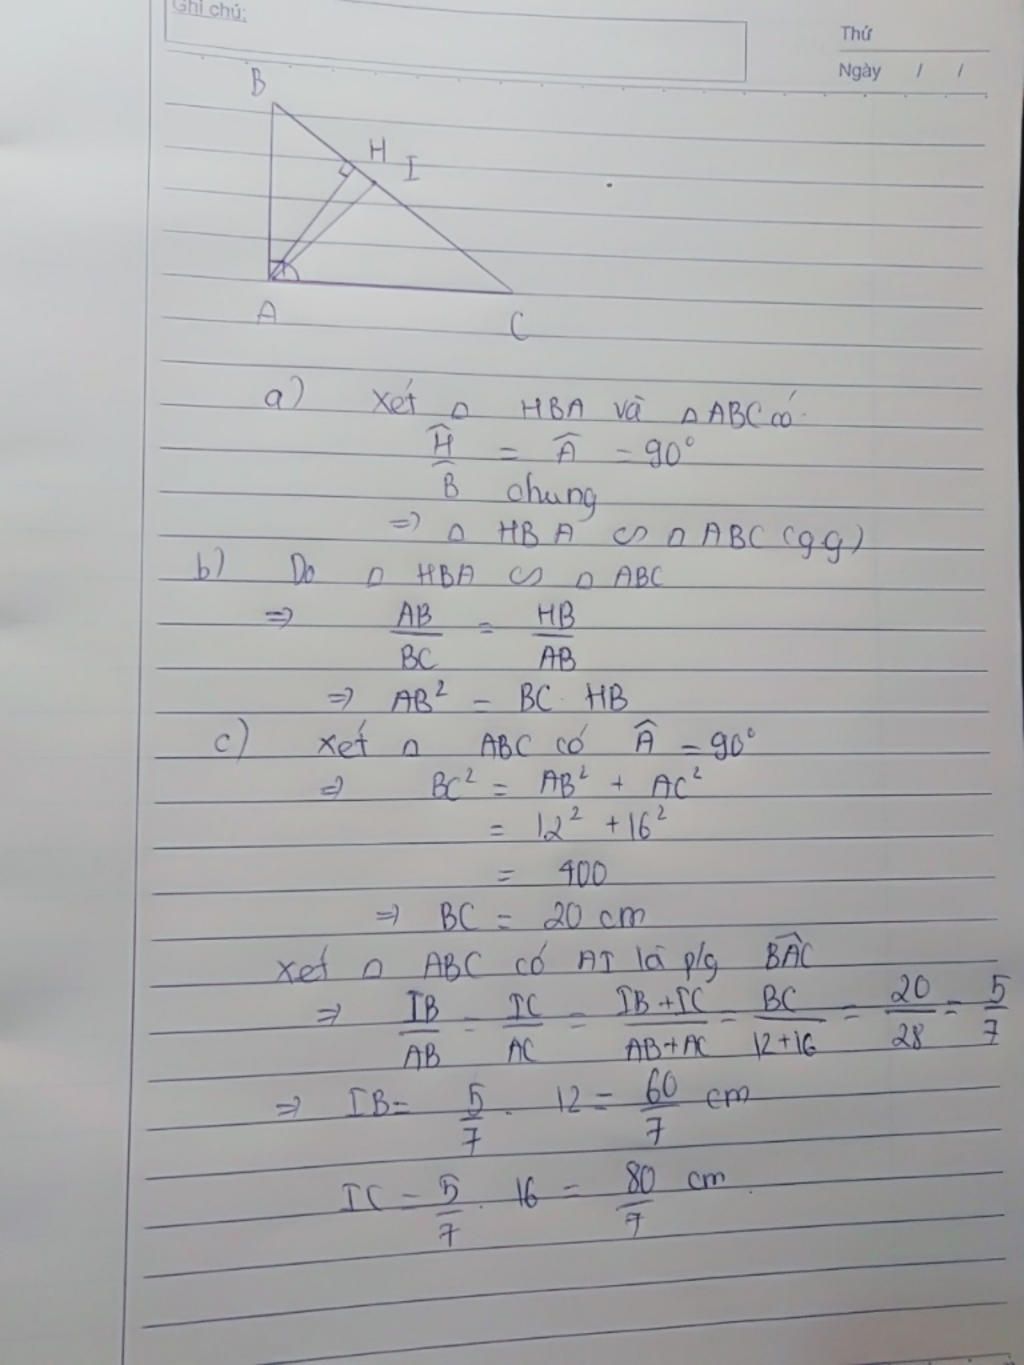 Ghi chú:
Thứ
Ngày / /
B
H I
A
C
a) Xét △ HBA và △ ABC có
Ĥ = Â = 90°
B̂ chung
=> △ HBA ∽ △ ABC (gg)
b) Do △ HBA ∽ △ ABC
=> AB/BC = HB/AB
=> AB² = BC . HB
c) Xét △ ABC có Â = 90°
=> BC² = AB² + AC²
= 12² + 16²
= 400
=> BC = 20 cm
Xét △ ABC có AI là p/g BÂC
=> IB/AB = IC/AC = IB+IC/AB+AC = BC/12+16 = 20/28 = 5/7
=> IB = 5/7 . 12 = 60/7 cm
IC = 5/7 . 16 = 80/7 cm